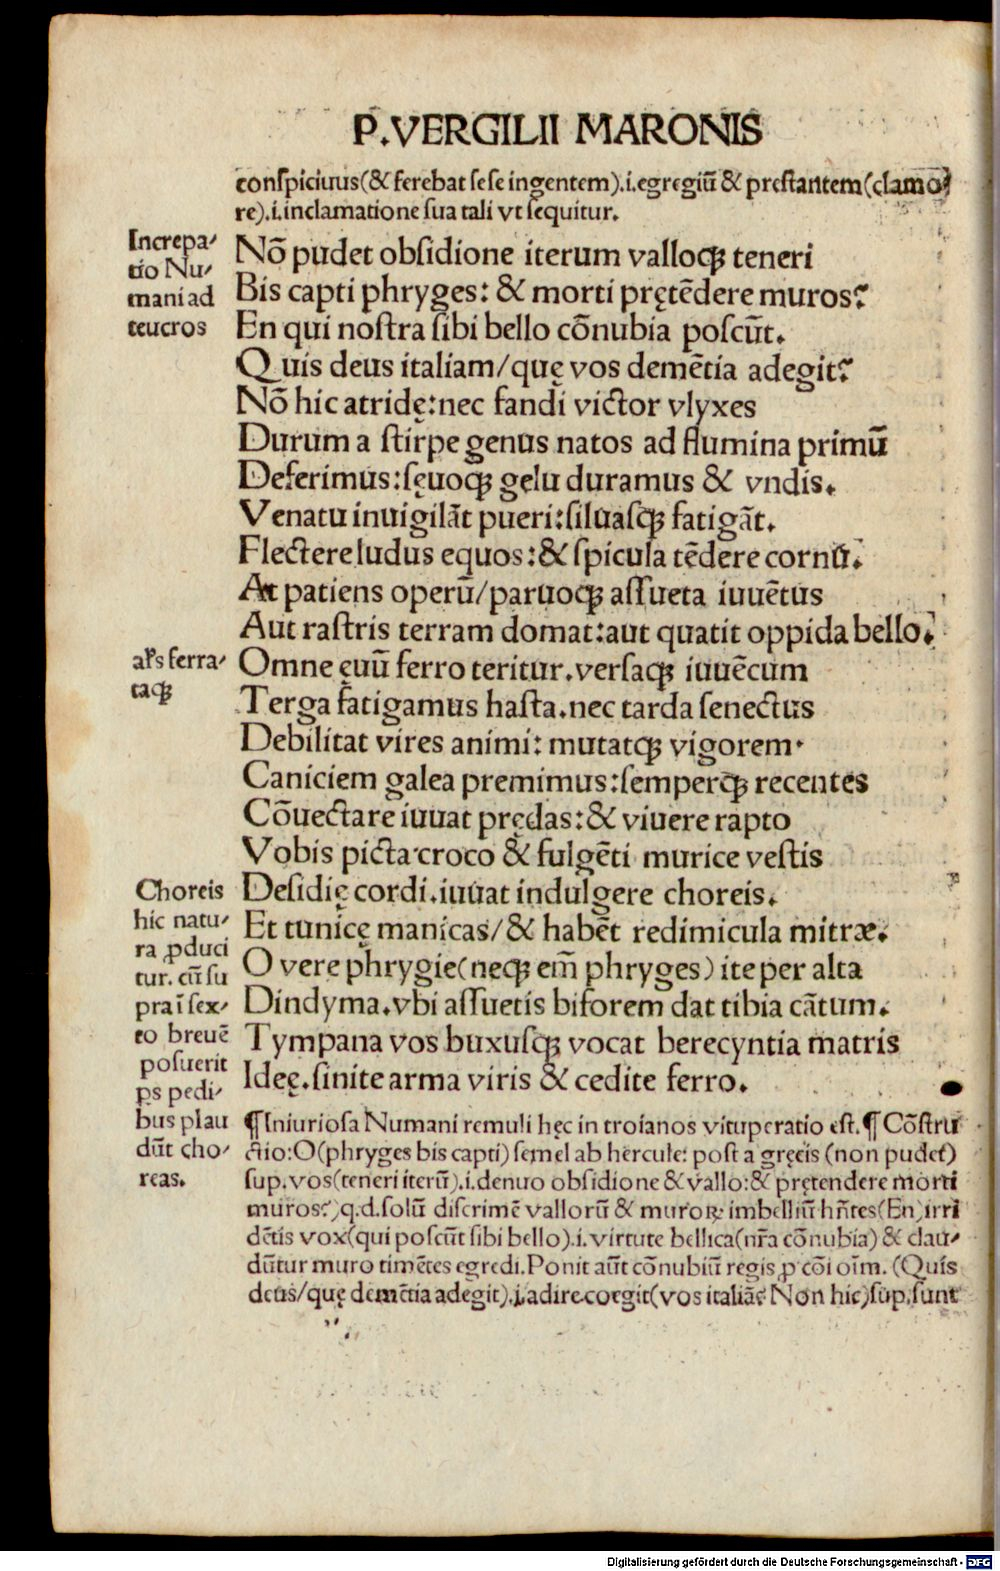 P.VERGILII MARONIS
conspicuus(& ferebat sese ingentem).i.egregiū & prestantem(clamo
re).i.inclamatione sua tali vt sequitur.
Increpa-
tio Nu-
mani ad
teucros
Nō pudet obsidione iterum valloqꝫ teneri
Bis capti phryges: & morti prętēdere muros?
En qui nostra sibi bello cōnubia poscūt.
Quis deus italiam/quę vos demētia adegit?
Nō hic atridę:nec fandi victor vlyxes
Durum a stirpe genus natos ad flumina primū
Deferimus:sęuoqꝫ gelu duramus & vndis.
Venatu inuigilāt pueri:siluasqꝫ fatigāt.
Flectere ludus equos:& spicula tēdere cornu.
At patiens operū/paruoqꝫ assueta iuuētus
Aut rastris terram domat:aut quatit oppida bello.
als ferra-
taqꝫ
Omne ęuū ferro teritur.versaqꝫ iuuēcum
Terga fatigamus hasta.nec tarda senectus
Debilitat vires animi: mutatqꝫ vigorem.
Caniciem galea premimus:semperqꝫ recentes
Cōuectare iuuat prędas:& viuere rapto
Vobis picta croco & fulgēti murice vestis
Choreis
hic natu-
ra ꝓduci
tur. cū su
pra ī sex-
to breuē
posuerit
ꝑs pedi-
bus plau
dūt cho-
reas.
Desidię cordi.iuuat indulgere choreis.
Et tunicę manicas/& habēt redimicula mitræ.
O vere phrygie(neqꝫ em̄ phryges) ite per alta
Dindyma.vbi assuetis biforem dat tibia cātum.
Tympana vos buxusqꝫ vocat berecyntia matris
Ideę.sinite arma viris & cedite ferro.
¶Iniuriosa Numani remuli hęc in troianos vituperatio est.¶ Cōstru
ctio:O(phryges bis capti) semel ab hercule: post a gręcis (non pudet)
sup.vos(teneri iterū).i.denuo obsidione & vallo:& prętendere morti
muros?)q.d.solū discrimē vallorū & muroꝝ imbelliū hn̄tes(En)irri
dētis vox(qui poscūt sibi bello).i.virtute bellica(nr̄a cōnubia) & clau-
dūtur muro timētes egredi.Ponit aūt cōnubiū regis ꝓ cōi oīm. (Quis
deus/quę demētia adegit).i.adire coegit(vos italiā? Non hic)sup.sunt
Digitalisierung gefördert durch die Deutsche Forschungsgemeinschaft - DFG